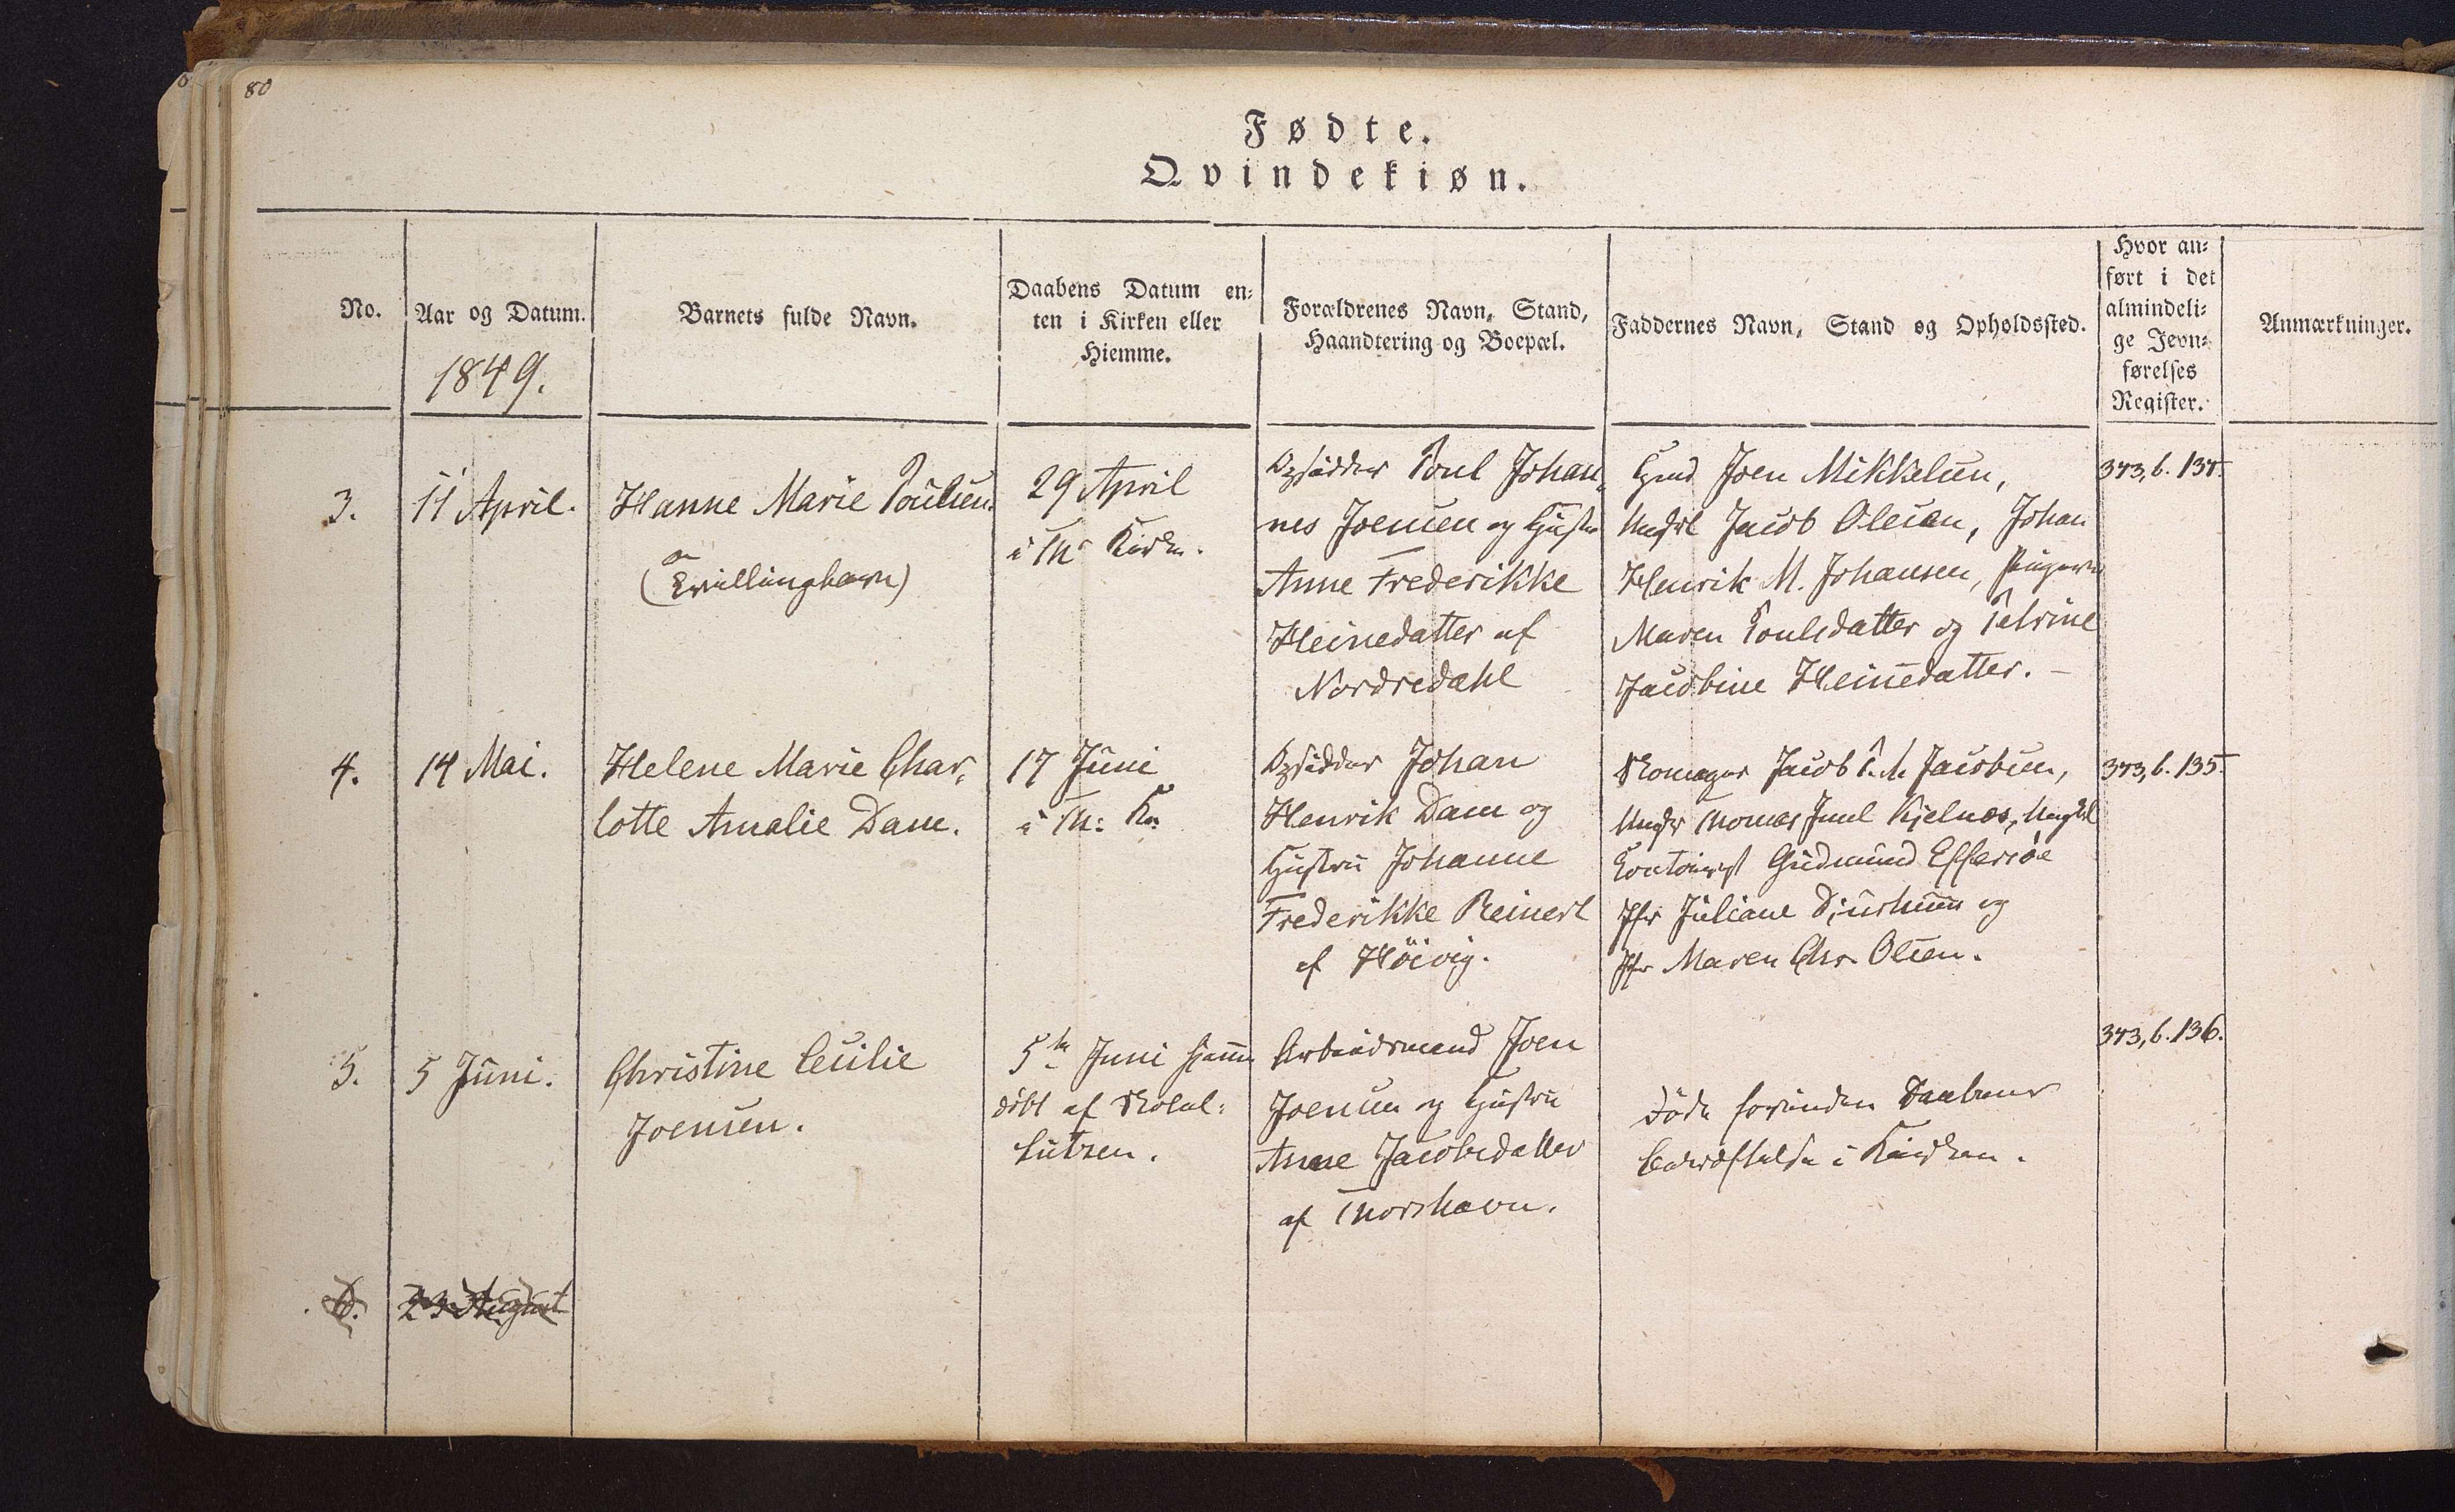 80
Fødte.
Qvindekiøn.
No.
Aar og Datum.
1849.
Barnets fulde Navn.
Daabens Datum en-
ten i Kirken eller
Hiemme.
Forældrenes Navn, Stand,
Haandtering og Boepæl.
Faddernes Navn, Stand og Opholdssted.
Hvor an-
ført i det
almindeli-
ge Jevn-
førelses
Register.
Anmærkninger.
3.
11 April.
Hanne Marie Poulsen.
(Tvillingbarn)
29 April
i Th. Kirke.
Opsidder Poul Johan-
nes Joensen og Hustru
Anne Frederikke
Heinedatter af
Nordredahl
Gmd Joen Mikkelsen,
Ungkl Jacob Olesen, Johan
Henrik M. Johansen, Pigerne
Maren Poulsdatter og Petrine
Jacobine Heinedatter. –
373, b. 134.
4.
14 Mai.
Helene Marie Char-
lotte Amalie Dam.
17 Juni
i Th: K.
Opsidder Johan
Henrik Dam og
Hustru Johanne
Frederikke Reinert
af Höivig.
Skomager Jacob Jacobsen,
Ungkl Thomas Juul Kjelnæs, Ungkl
Contoirist Gudmund Effersöe
Jfr Juliane Djurhuus og
Jfr Maren Chr. Olsen.
373, b. 135.
5.
5 Juni.
Christine Cecilie
Joensen.
5te Juni hjemme
döbt af Skolel:
Lützen.
Arbeidsmand Joen
Joensen og Hustru
Anne Jacobsdatter
af Thorshavn.
Döde forinden Daabens
Bekræftelse i Kirken.
373, b. 136.
6.
23 August